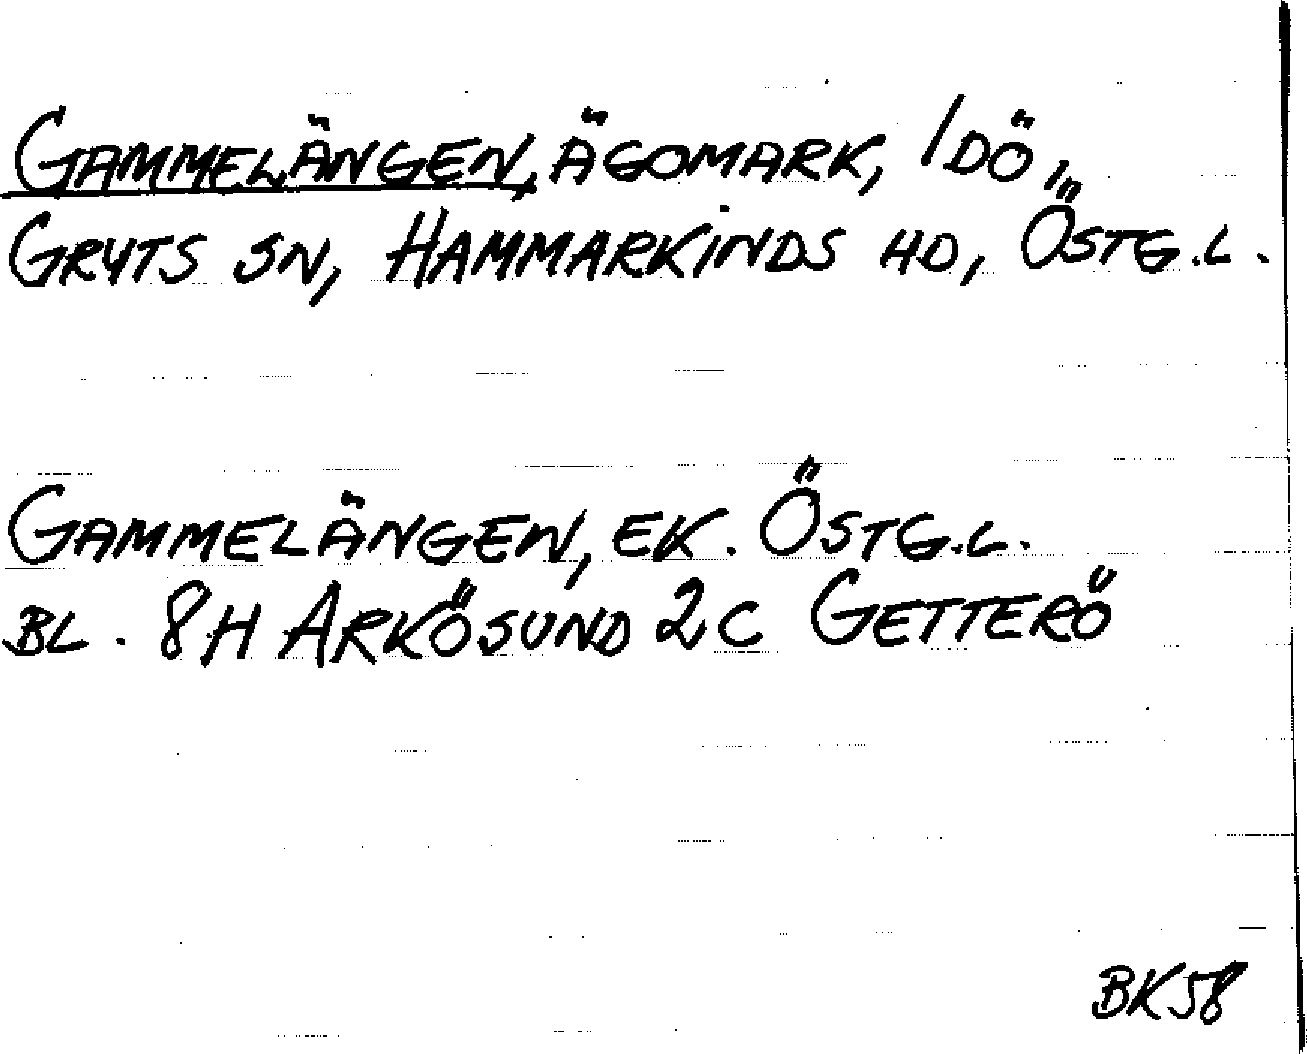 GAMMELÄNGEN, ÄGOMARK, IDÖ,
GRYTS SN, HAMMARKINDS HD, ÖSTG.L.
GAMMELÄNGEN, EK. ÖSTG.L.
BL. 8H ARKÖSUND 2C GETTERÖ
BK58